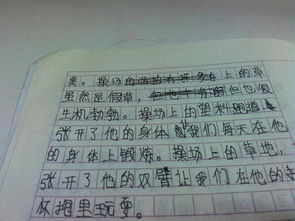 类。操场上的草
虽然是假草，但也很
生机勃勃。操场上的塑料跑道
张开了他的身体，我们每天在他
的身体上锻炼。操场上的草地，
张开了他的双臂让我们在他的
怀抱里玩耍。